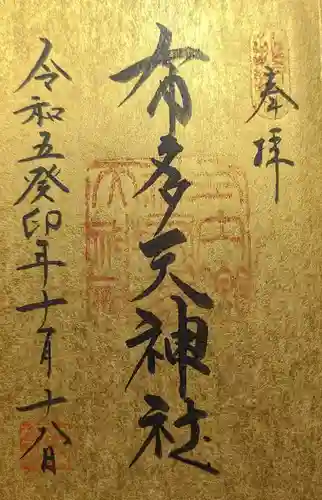 奉拝
有多天神社
令和五癸卯年十一月十八日